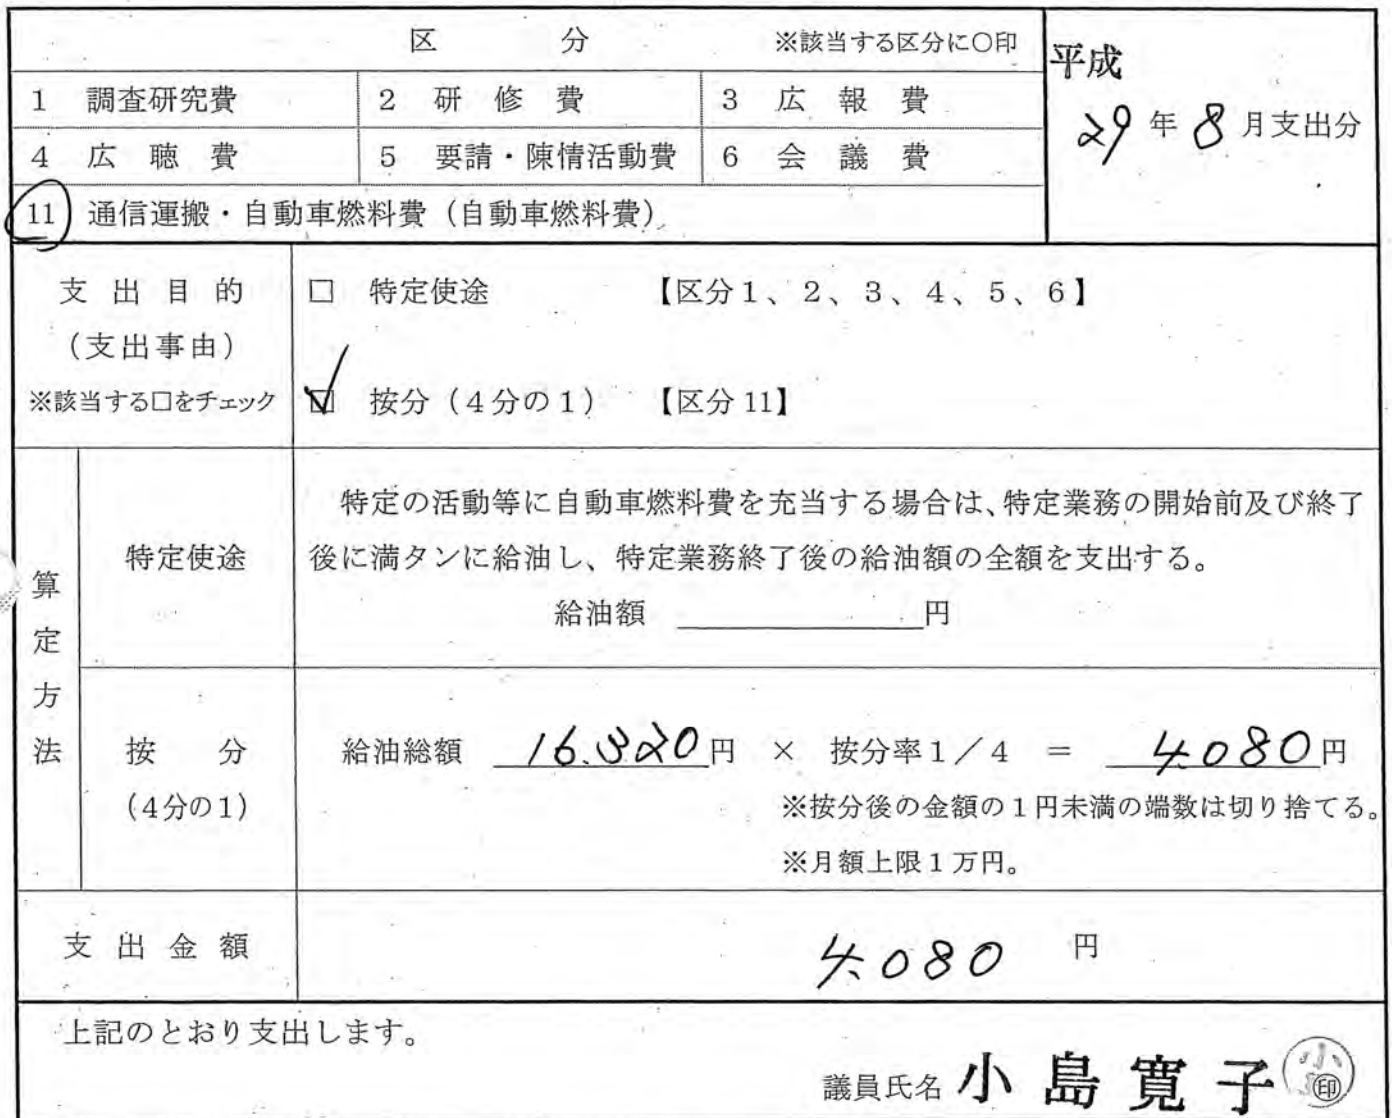 区　　　分　　※該当する区分に○印
平成
29年8月支出分
1 調査研究費　2 研修費　3 広報費
4 広聴費　5 要請・陳情活動費　6 会議費
11 通信運搬・自動車燃料費（自動車燃料費）
支出目的
（支出事由）
※該当する□をチェック
□ 特定使途　【区分1、2、3、4、5、6】
☑ 按分（4分の1）　【区分11】
算定方法
特定使途
特定の活動等に自動車燃料費を充当する場合は、特定業務の開始前及び終了
後に満タンに給油し、特定業務終了後の給油額の全額を支出する。
給油額　　　　円
按分
（4分の1）
給油総額 16.320円 × 按分率1／4 ＝ 4.080円
※按分後の金額の1円未満の端数は切り捨てる。
※月額上限1万円。
支出金額　4.080 円
上記のとおり支出します。
議員氏名 小島寛子 ㊞